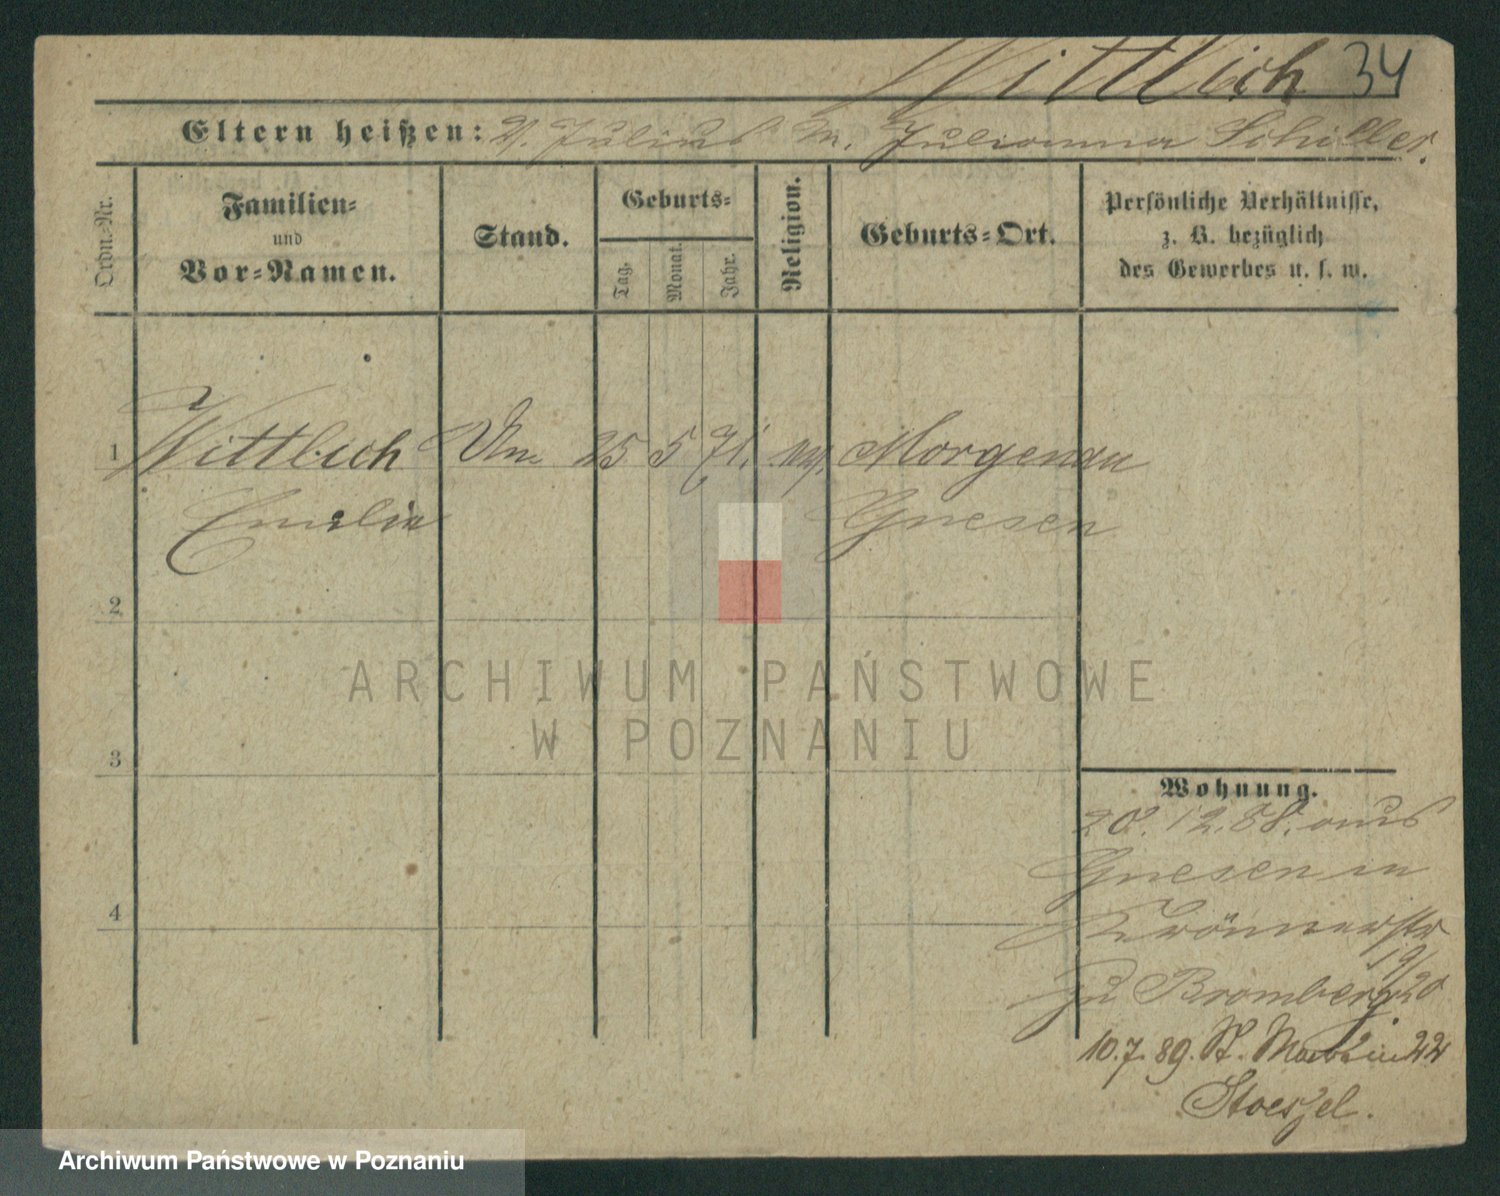 Wittlich 34
Eltern heißen: V. Julius M. Julianna Schiller.
Ordn.-Nr.
Familien-
und
Vor-Namen.
Stand.
Geburts-
Tag.
Monat.
Jahr.
Religion.
Geburts-Ort.
Persönliche Verhältnisse,
z. B. bezüglich
des Gewerbes u. s. w.
1 Wittlich Un. 25 5 71. Morgenau
Emilie Gnesen
2
3
4
Wohnung.
20. 12. 88. aus
Gnesen in
19/20
zu Bromberg
10.7.89. St. Martin 22
Stoeszel.
ARCHIWUM PAŃSTWOWE
W POZNANIU
Archiwum Państwowe w Poznaniu